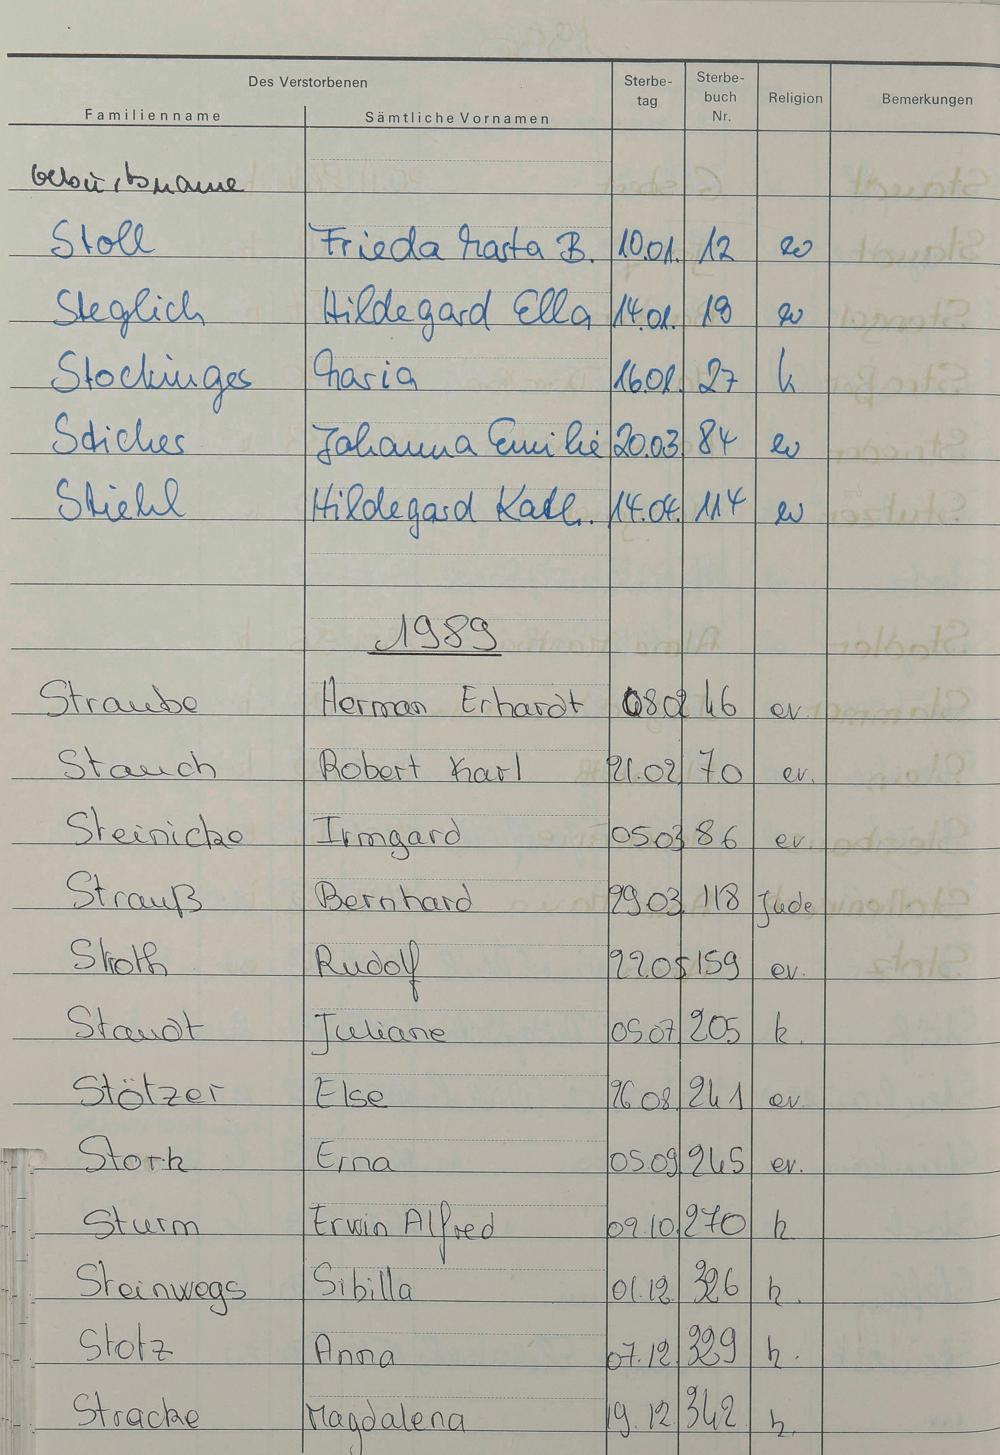 Des Verstorbenen
Familienname Sämtliche Vornamen Sterbe-tag Sterbe-buch Nr. Religion Bemerkungen
Geburtsname
Stoll Frieda Marta B. 10.01. 12 ev
Steglich Hildegard Ella 14.01. 19 ev
Stockinger Maria 16.01. 27 k
Sticher Johanna Emilie 20.03 84 ev
Stiehl Hildegard Kath. 14.04. 114 ev
1989
Straube Herman Erhardt 08.02 46 ev.
Stauch Robert Karl 21.02 70 ev.
Steinicke Irmgard 05.03 86 ev.
Strauß Bernhard 29.03. 118 Jude
Stroth Rudolf 22.05 159 ev.
Staudt Juliane 05.07 205 k.
Stötzer Else 26.08. 241 ev.
Stork Erna 05.09 245 ev.
Sturm Erwin Alfred 09.10. 270 k
Steinwegs Sibilla 01.12. 326 k.
Stotz Anna 07.12. 329 k.
Stracke Magdalena 19.12. 342 k.